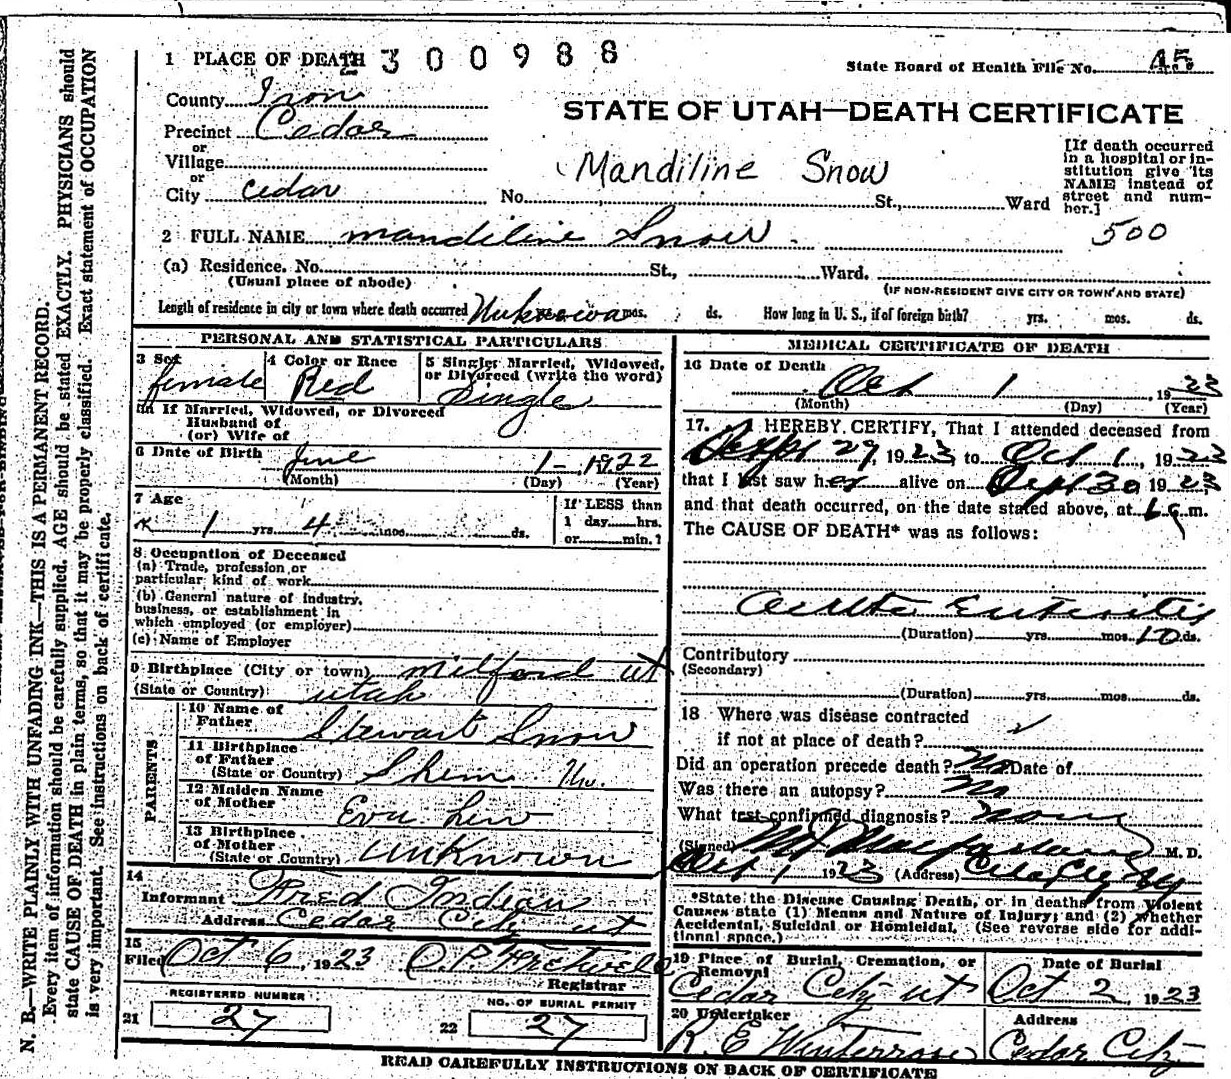 1 PLACE OF DEATH 2300988
State Board of Health File No. 45
County Iron
STATE OF UTAH—DEATH CERTIFICATE
Precinct Cedar
or
Village
or
City Cedar No. St., Ward
Mandiline Snow
[If death occurred
in a hospital or in-
stitution give its
NAME instead of
street and num-
ber.]
2 FULL NAME Mandiline Snow 500
(a) Residence. No. St., Ward.
(Usual place of abode) (IF NON-RESIDENT GIVE CITY OR TOWN AND STATE)
Length of residence in city or town where death occurred Unknown mos. ds. How long in U. S., if of foreign birth? yrs. mos. ds.
PERSONAL AND STATISTICAL PARTICULARS
3 Sex female
4 Color or Race Red
5 Single, Married, Widowed,
or Divorced (write the word)
Single
5a If Married, Widowed, or Divorced
Husband of
(or) Wife of
6 Date of Birth June 1- 1922
(Month) (Day) (Year)
7 Age
1 yrs. 4 mos. ds.
If LESS than
1 day hrs.
or min.?
8 Occupation of Deceased
(a) Trade, profession, or
particular kind of work
(b) General nature of industry,
business, or establishment in
which employed (or employer)
(c) Name of Employer
9 Birthplace (City or town) Milford ut
(State or Country) utah
PARENTS
10 Name of
Father Stewart Snow
11 Birthplace
of Father
(State or Country) Shem
12 Maiden Name
of Mother
13 Birthplace
of Mother
(State or Country) Unknown
14
Informant Fred Indian
Address Cedar City ut
15
Filed Oct 6, 1923
Registrar
REGISTERED NUMBER
21 27
NO. OF BURIAL PERMIT
22 27
MEDICAL CERTIFICATE OF DEATH
16 Date of Death
Oct 1 1923
(Month) (Day) (Year)
17. I HEREBY CERTIFY, That I attended deceased from
Sept 29, 1923, to Oct 1, 1923
that I last saw her alive on Sept 30 1923
and that death occurred, on the date stated above, at m.
The CAUSE OF DEATH* was as follows:
Acute Enteritis
(Duration) yrs. mos. 10 ds.
Contributory
(Secondary)
(Duration) yrs. mos. ds.
18 Where was disease contracted
if not at place of death?
Did an operation precede death? No Date of
Was there an autopsy? No
What test confirmed diagnosis? None
(Signed) M. J. Macfarlane M. D.
Oct 1, 1923 (Address) Cedar City Ut
*State the Disease Causing Death, or in deaths from Violent
Causes state (1) Means and Nature of Injury; and (2) whether
Accidental, Suicidal or Homicidal. (See reverse side for addi-
tional space.)
19 Place of Burial, Cremation, or
Removal
Cedar City ut
Date of Burial
Oct 2, 1923
20 Undertaker
R. E. Winterrose
Address
Cedar City
READ CAREFULLY INSTRUCTIONS ON BACK OF CERTIFICATE
N. B.—WRITE PLAINLY WITH UNFADING INK—THIS IS A PERMANENT RECORD.
Every item of information should be carefully supplied. AGE should be stated EXACTLY. PHYSICIANS should
state CAUSE OF DEATH in plain terms, so that it may be properly classified. Exact statement of OCCUPATION
is very important. See instructions on back of certificate.